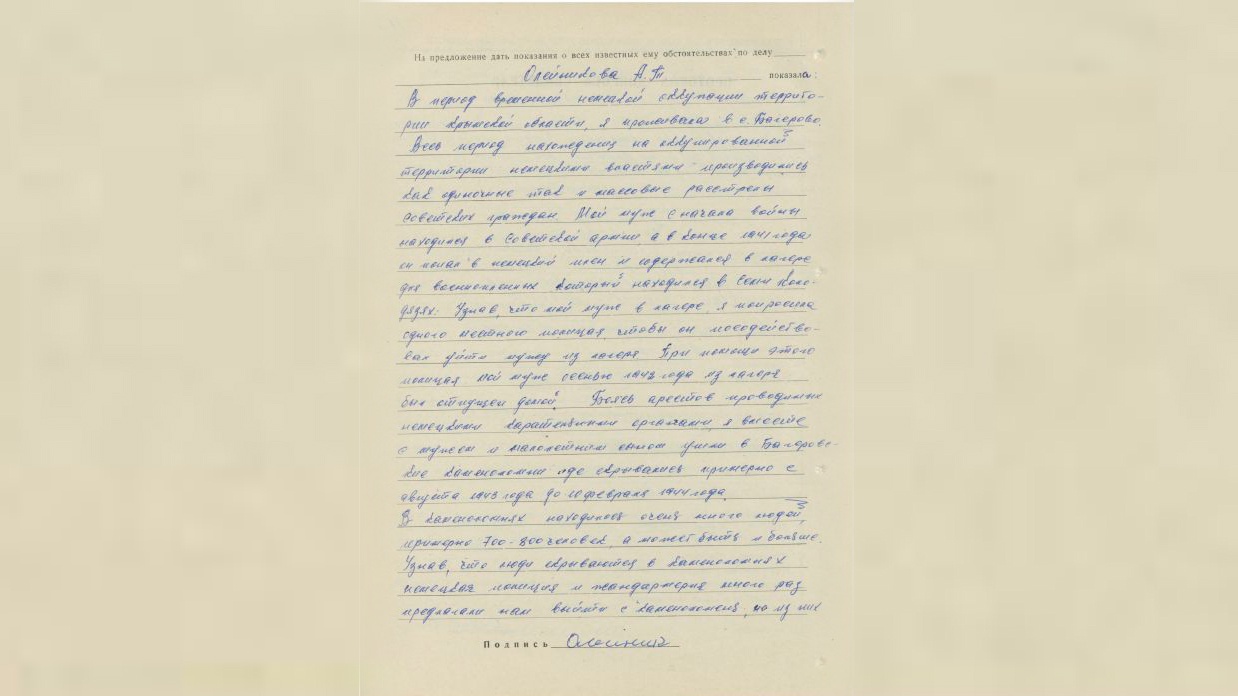 На предложение дать показания о всех известных ему обстоятельствах по делу
Олейникова А. Т показала:
В период временной немецкой оккупации террито-
рии Крымской области, я проживала в с. Багерово.
Весь период нахождения на оккупированной
территории немецкими властями производились
как одиночные так и массовые расстрелы
Советских граждан. Мой муж с начала войны
находился в Советской армии, а в конце 1941 года
он попал в немецкий плен и содержался в лагере
для военнопленных который находился в Семи коло-
дязях. Узнав, что мой муж в лагере, я попросила
одного местного полицая, чтобы он посодейство-
вал уйти мужу из лагеря. При помощи этого
полицая мой муж осенью 1942 года из лагеря
был отпущен домой. Боясь арестов проводимых
немецкими карательными органами, я вместе
с мужем и малолетним сыном ушли в Багеровс-
кие каменоломни где скрывались примерно с
августа 1943 года до 10 февраля 1944 года.
В каменоломнях находилось очень много людей,
примерно 700-800 человек, а может быть и больше.
Узнав, что люди скрываются в каменоломнях
немецкая полиция и жандармерия много раз
предлагали нам выйти с каменоломень, но из них
Подпись